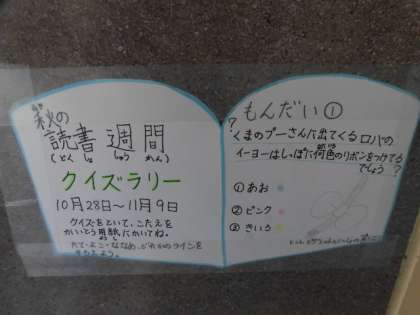 秋の
読書週間
(どくしょしゅうかん)
クイズラリー
10月28日～11月9日
クイズをといて、こたえを
かいとう用紙にかいてね。
たて・よこ・ななめ、どれかのラインを
もんだい①
くまのプーさんに出てくるロバの
イーヨーはしっぽに何色のリボンをつけてる
でしょう?
①あお
②ピンク
③きいろ